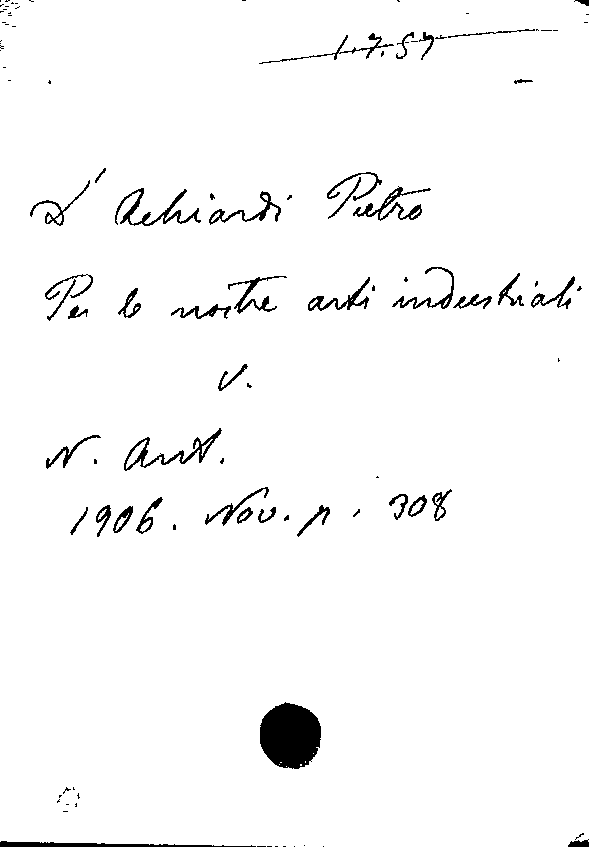 1.7.57
D'Achiardi Pietro
Per le nostre arti industriali
v.
N. Ant.
1906. Nov. p. 308